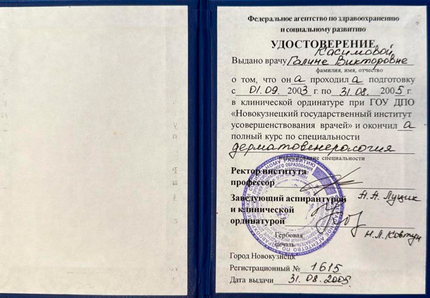 Федеральное агентство по здравоохранению
и социальному развитию
УДОСТОВЕРЕНИЕ
Касимовой
Выдано врачу Галине Викторовне
фамилия, имя, отчество
о том, что он а проходил а подготовку
с 01.09. 2003 г. по 31.08. 2005 г
в клинической ординатуре при ГОУ ДПО
«Новокузнецкий государственный институт
усовершенствования врачей» и окончил а
полный курс по специальности
дерматовенерология
специальности
Ректор института
профессор
А.А. Луцик
Заведующий аспирантурой
и клинической
ординатурой
Н.Л. Ковтун
Гербовая
печать
Город Новокузнецк
Регистрационный № 1615
Дата выдачи 31.08.2005